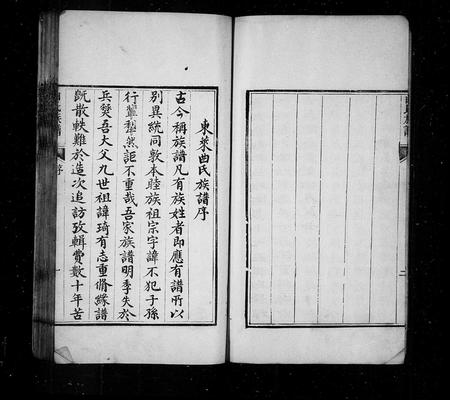 東萊曲氏族譜序
古今稱族譜凡有族姓者即應有譜所以
別異統同敦本睦族祖宗字諱不犯子孫
行輩犂然詎不重哉吾家族譜明季失於
兵燹吾大父九世祖諱琦有志重脩緣譜
既散軼難於造次追訪攷輯費數十年苦
族譜
序
一
二